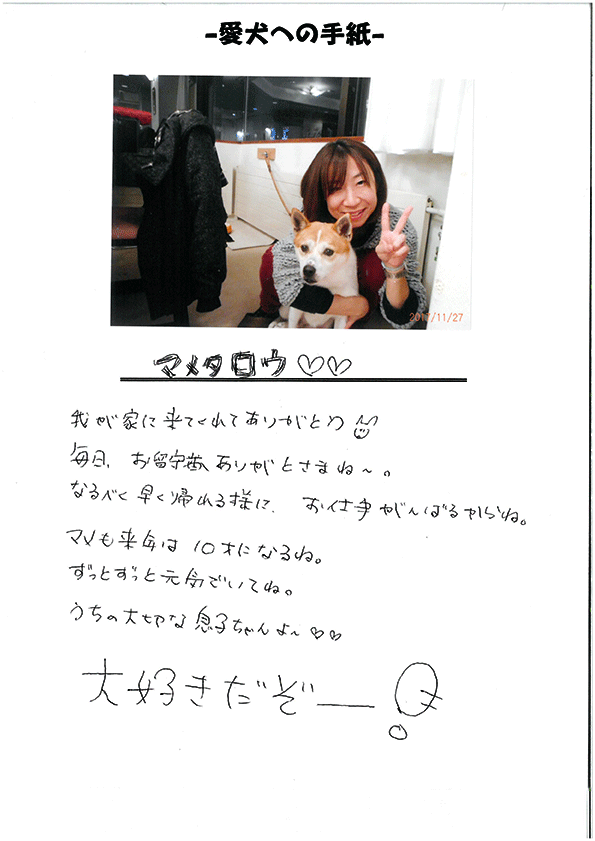 -愛犬への手紙-
2011/11/27
マメタロウ♡♡
我が家に来てくれてありがとう
毎日、お留守番ありがとさまね〜。
なるべく早く帰れる様に、お仕事がんばるからね。
マメも来年は10才になるね。
ずっとずっと元気でいてね。
うちの大切な息子ちゃんよ〜♡♡
大好きだぞー